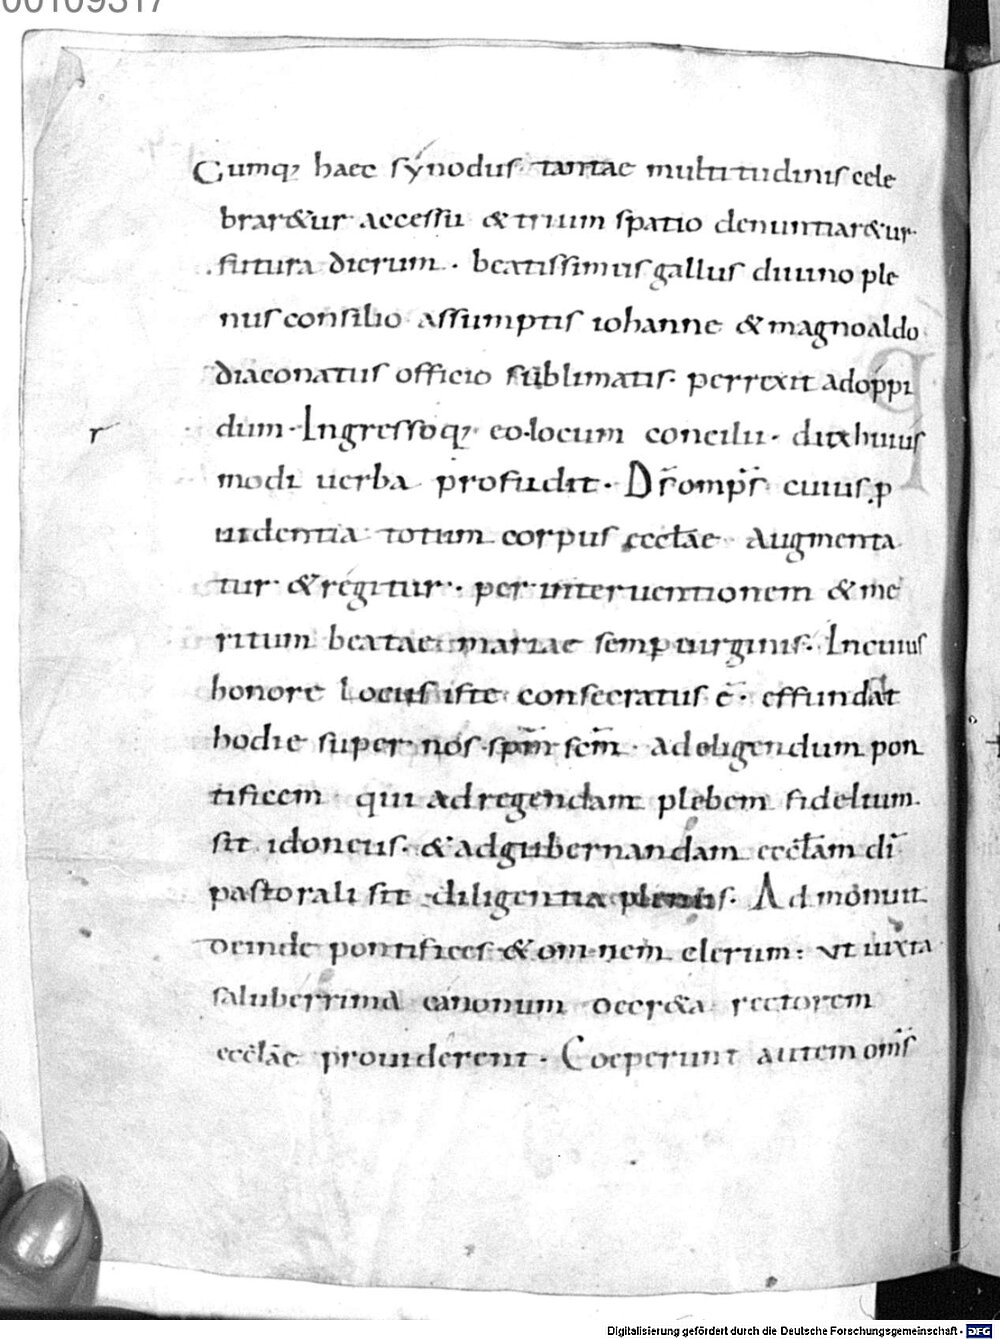 00109317
Cumq; haec synodus tantae multitudinis cele
brar&ur accessu & trium spatio denuntiar&ur
futura dierum. beatissimus gallus diuino ple
nus consilio assumptis iohanne & magnoaldo
diaconatus officio sublimatis. perrexit adoppi
dum. Ingressoq; eo. locum concilii. dux huius
modi uerba profudit. Dŝ omp̄s cuius p
uidentia totum corpus eccl̄ae augmenta
tur & regitur. per interuentionem & me
ritum beatae mariae semp uirginis. In cuius
honore locus iste consecratus ē. effundat
hodie super nos sp̄m sc̄m. ad eligendum pon
tificem qui ad regendam plebem fidelium
sit idoneus. & ad gubernandam eccl̄am dī
pastorali sit diligentia plenus. Admonuit
deinde pontifices & omnem clerum: ut iuxta
saluberrima canonum decr&a rectorem
eccl̄ae prouiderent. Coeperunt autem om̄s
r
Digitalisierung gefördert durch die Deutsche Forschungsgemeinschaft - DFG